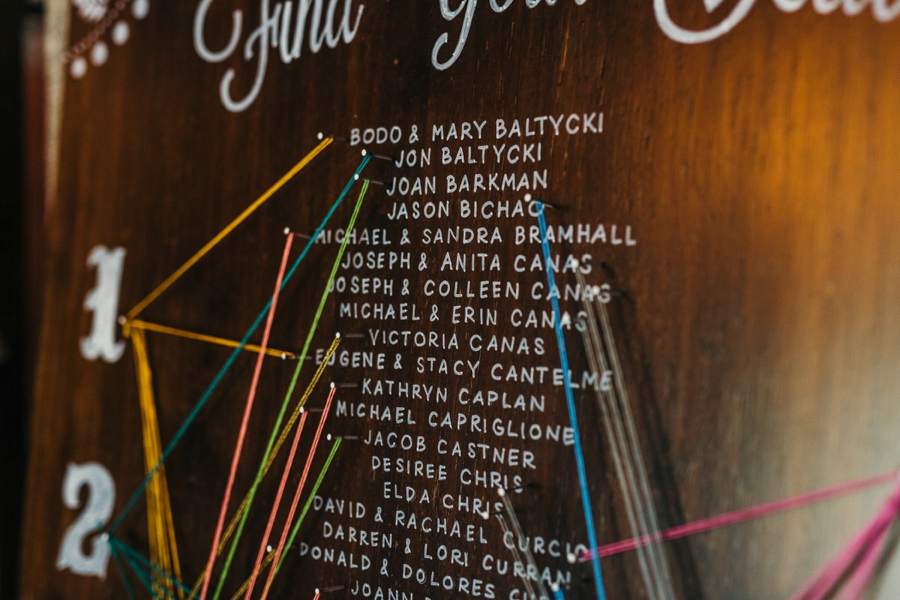 Find Your
BODO & MARY BALTYCKI
JON BALTYCKI
JOAN BARKMAN
JASON BICHAO
MICHAEL & SANDRA BRAMHALL
JOSEPH & ANITA CANAS
JOSEPH & COLLEEN CANAS
MICHAEL & ERIN CANAS
VICTORIA CANAS
EUGENE & STACY CANTELME
KATHRYN CAPLAN
MICHAEL CAPRIGLIONE
JACOB CASTNER
DESIREE CHRIS
ELDA CHRIS
DAVID & RACHAEL CURCIO
DARREN & LORI CURRAN
DONALD & DOLORES
JOANN
1
2